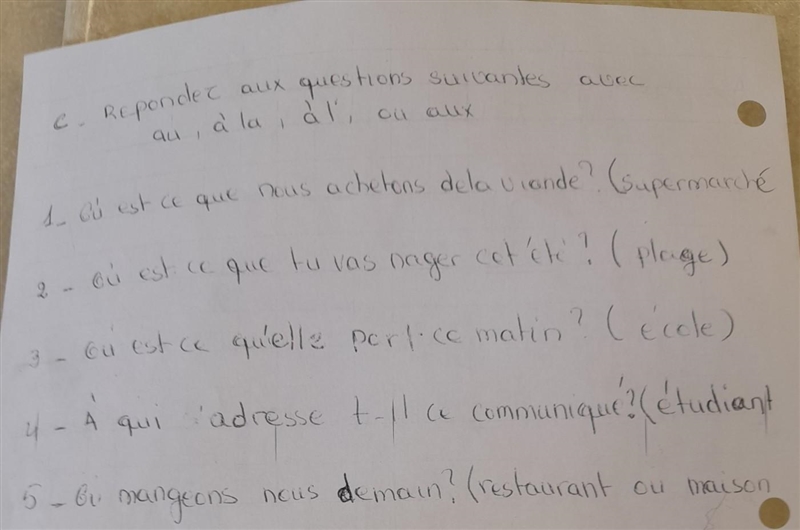 C. Repondez aux questions suivantes avec
au, à la, à l', ou aux
1- Où est ce que nous achetons de la viande? (supermarché
2 - Où est ce que tu vas nager cet été? (plage)
3 - Où est ce qu'elle part ce matin? (école)
4 - À qui s'adresse t-il ce communiqué? (étudiant
5 - Où mangeons nous demain? (restaurant ou maison